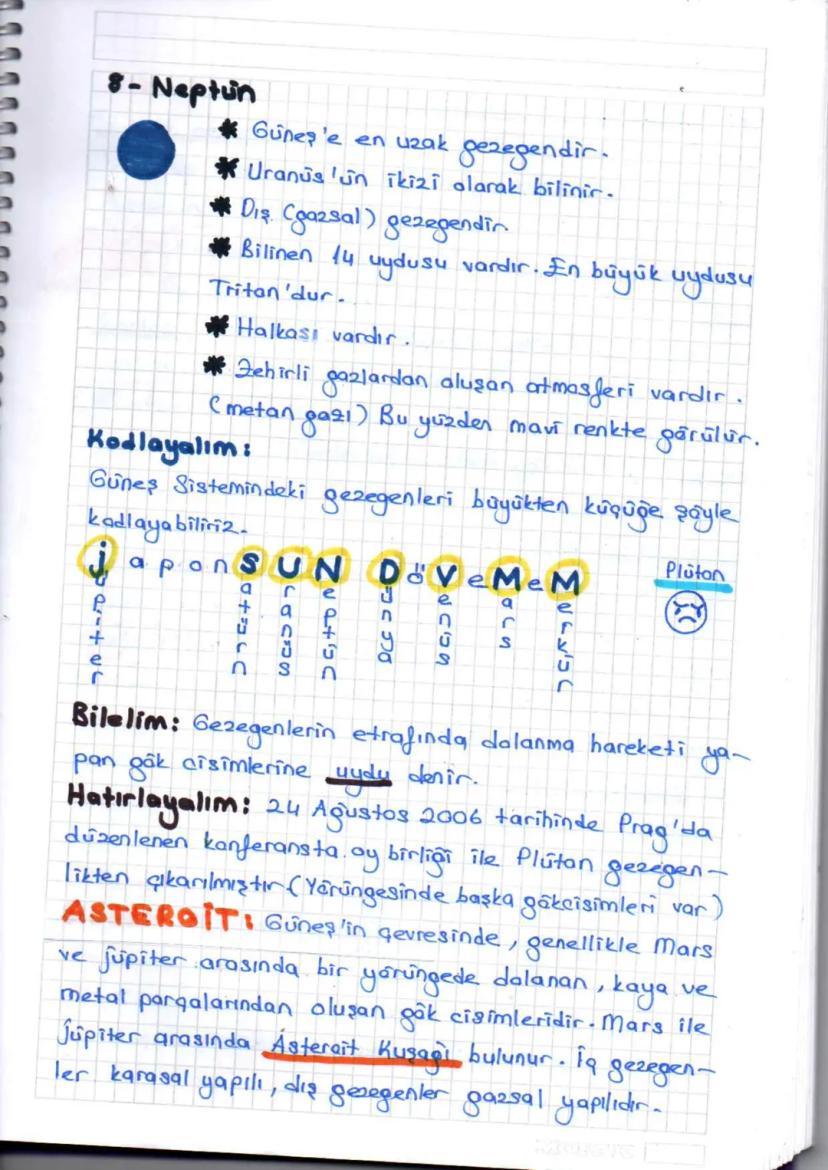 8- Neptün
* Güneş'e en uzak gezegendir.
* Uranüs'ün ikizi olarak bilinir.
* Dış (gazsal) gezegendir.
* Bilinen 14 uydusu vardır. En büyük uydusu
Triton'dur.
* Halkası vardır.
* Zehirli gazlardan oluşan atmosferi vardır.
(metan gazı) Bu yüzden mavi renkte görülür.
Kodlayalım:
Güneş Sistemindeki gezegenleri büyükten küçüğe şöyle
kodlayabiliriz.
japon SUN DöVeMeM
Jüpiter
Satürn
Uranüs
Neptün
Dünya
Venüs
Mars
Merkür
Plüton
Bilelim: Gezegenlerin etrafında dolanma hareketi ya-
pan gök cisimlerine uydu denir.
Hatırlayalım: 24 Ağustos 2006 tarihinde Prag'da
düzenlenen konferansta oy birliği ile Plüton gezegen-
likten çıkarılmıştır (Yörüngesinde başka gökcisimleri var)
ASTEROİT: Güneş'in çevresinde, genellikle Mars
ve jüpiter arasında bir yörüngede dolanan, kaya ve
metal parçalarından oluşan gök cisimleridir. Mars ile
jüpiter arasında Asteroit Kuşağı bulunur. İç gezegen-
ler karasal yapılı, dış gezegenler gazsal yapılıdır.